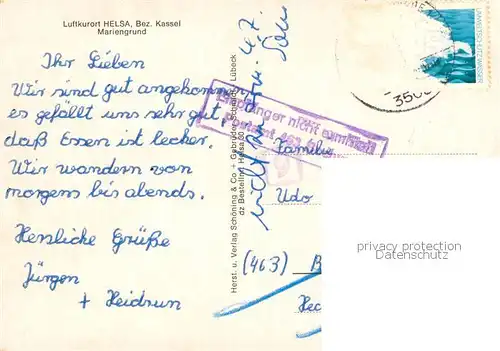 Luftkurort HELSA, Bez. Kassel
Mariengrund
Ihr Lieben
Wir sind gut angekommen,
es gefällt uns sehr gut,
daß Essen ist lecker.
Wir wandern von
morgens bis abends.
Herzliche Grüße
Jürgen
+ Heidrun
Herst. u. Verlag Schöning & Co + Gebrüder Schmidt, Lübeck
Empfänger nicht ermittelt
Postamt 463
3500
LANDSTSCHUTZGEBIETE
Familie
Udo
(463) B
privacy protection
Datenschutz